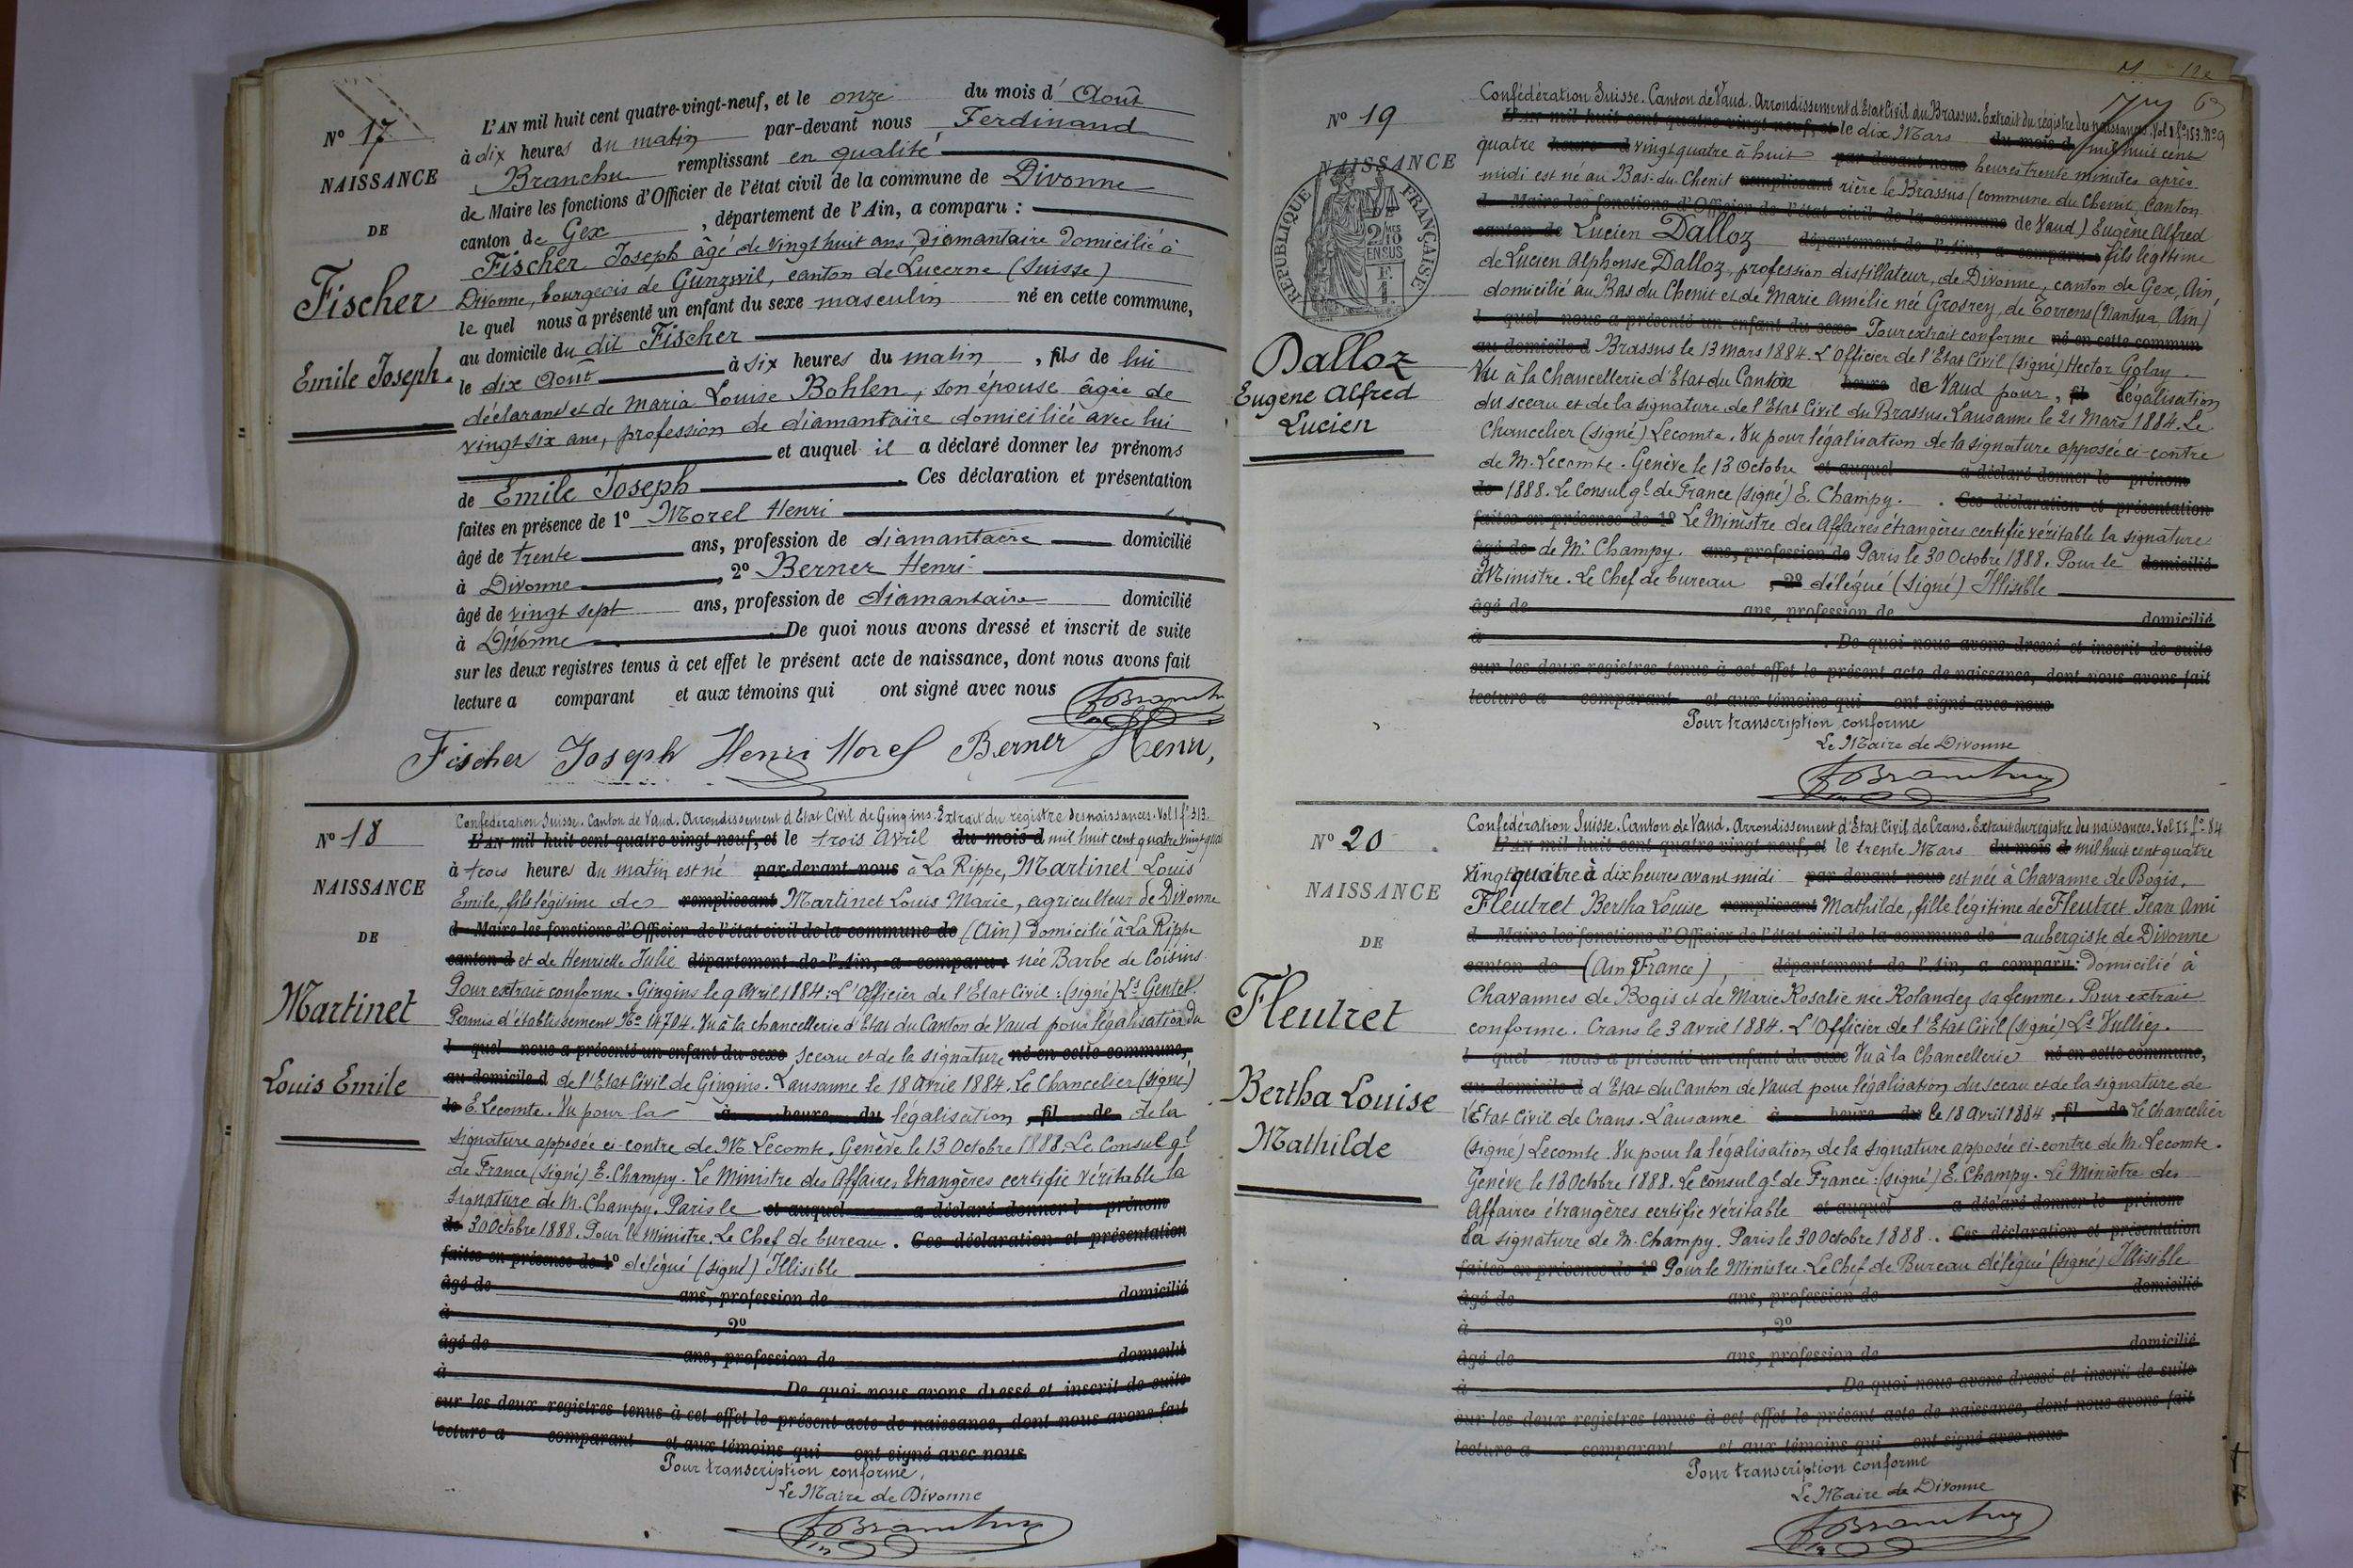 N° 17
NAISSANCE
DE
Fischer
Emile Joseph.
L'AN mil huit cent quatre-vingt-neuf, et le onze du mois d' Août
à dix heures du matin par-devant nous Ferdinand
Branchu remplissant en qualité
de Maire les fonctions d'Officier de l'état civil de la commune de Divonne
canton de Gex, département de l'Ain, a comparu :
Fischer Joseph âgé de vingt huit ans diamantaire domicilié à
Divonne, bourgeois de Gunzwil, canton de Lucerne (Suisse)
le quel nous a présenté un enfant du sexe masculin né en cette commune,
au domicile du dit Fischer
le dix Août à six heures du matin, fils de lui
déclarant et de Maria Louise Bohlen, son épouse âgée de
vingt six ans, profession de diamantaire domiciliée avec lui
et auquel il a déclaré donner les prénoms
de Emile Joseph. Ces déclaration et présentation
faites en présence de 1° Morel Henri
âgé de trente ans, profession de diamantaire domicilié
à Divonne, 2° Berner Henri
âgé de vingt sept ans, profession de diamantaire domicilié
à Divonne. De quoi nous avons dressé et inscrit de suite
sur les deux registres tenus à cet effet le présent acte de naissance, dont nous avons fait
lecture a comparant et aux témoins qui ont signé avec nous
Fischer Joseph Henri Morel Berner Henri,
N° 18
NAISSANCE
DE
Martinet
Louis Emile
Confédération Suisse. Canton de Vaud. Arrondissement d'Etat Civil de Gingins. Extrait du registre des naissances. Vol 1 f° 313.
L'AN mil huit cent quatre-vingt-neuf, et le trois Avril du mois d mil huit cent quatre vingt quatre
à trois heures du matin est né par-devant nous à La Rippe, Martinet Louis
Emile, fils légitime de remplissant Martinet Louis Marie, agriculteur de Divonne
d Maire les fonctions d'Officier de l'état civil de la commune de (Ain) domicilié à La Rippe
canton d et de Henriette Julie département de l'Ain, a comparu : née Barbe de Coisins.
Pour extrait conforme. Gingins le 9 Avril 1884 : L'Officier de l'Etat Civil : (signé) Ls Gentet.
Permis d'établissement N° 14704. Vu à la chancellerie d'Etat du Canton de Vaud pour légalisation du
l quel nous a présenté un enfant du sexe sceau et de la signature né en cette commune,
au domicile d de l'Etat Civil de Gingins. Lausanne le 18 Avril 1884. Le Chancelier (signé)
le E. Lecomte. Vu pour la à heure du légalisation, fil de de la
signature apposée ci-contre de Mr Lecomte. Genève le 13 Octobre 1888. Le Consul gl
de France (signé) E. Champy. Le Ministre des Affaires Etrangères certifie véritable la
signature de M. Champy. Paris le et auquel a déclaré donner l prénom
de 30 Octobre 1888. Pour le Ministre. Le Chef de bureau. Ces déclaration et présentation
faites en présence de 1° délégué (signé) Illisible
âgé de ans, profession de domicilié
à , 2°
âgé de ans, profession de domicilié
à . De quoi nous avons dressé et inscrit de suite
sur les deux registres tenus à cet effet le présent acte de naissance, dont nous avons fait
lecture a comparant et aux témoins qui ont signé avec nous
Pour transcription conforme,
Le Maire de Divonne
N° 19
NAISSANCE
DE
RÉPUBLIQUE FRANÇAISE
2/10 EN SUS
Dalloz
Eugène Alfred
Lucien
Confédération Suisse. Canton de Vaud. Arrondissement d'Etat Civil du Brassus. Extrait du régistre des naissances. Vol 1 f° 153. N° 9
L'AN mil huit cent quatre-vingt-neuf, et le dix Mars du mois d mil huit cent
quatre heure d vingt quatre à huit par devant nous heures trente minutes après
midi est né au Bas-du-Chenit remplissant rière le Brassus (commune du Chenit, Canton
d Maire les fonctions d'Officier de l'état civil de la commune de Vaud) Eugène Alfred
canton de Lucien Dalloz département de l'Ain, a comparu : fils légitime
de Lucien Alphonse Dalloz, profession distillateur, de Divonne, canton de Gex, Ain,
domicilié au Bas du Chenit et de Marie Amélie née Grosrey, de Torrens (Nantua, Ain)
l quel nous a présenté un enfant du sexe Pour extrait conforme né en cette commun
au domicile d Brassus le 13 mars 1884. L'Officier de l'Etat Civil (signé) Hector Golay.
Vu à la Chancellerie d'Etat du Canton heure de Vaud pour, fil légalisation
du sceau et de la signature de l'Etat Civil du Brassus. Lausanne le 21 Mars 1884. Le
Chancelier (signé) Lecomte. Vu pour légalisation de la signature apposée ci-contre
de M. Lecomte. Genève le 13 Octobre et auquel a déclaré donner le prénom
de 1888. Le Consul gl de France (signé) E. Champy. Ces déclaration et présentation
faites en présence de 1° Le Ministre des Affaires étrangères certifie véritable la signature
âgé de de Mr Champy. ans, profession de Paris le 30 Octobre 1888. Pour le domicilié
à Ministre. Le Chef de bureau , 2° délégué (signé) Illisible
âgé de ans, profession de domicilié
à . De quoi nous avons dressé et inscrit de suite
sur les deux registres tenus à cet effet le présent acte de naissance, dont nous avons fait
lecture a comparant et aux témoins qui ont signé avec nous
Pour transcription conforme
Le Maire de Divonne
N° 20
NAISSANCE
DE
Fleutret
Bertha Louise
Mathilde
Confédération Suisse. Canton de Vaud. Arrondissement d'Etat Civil de Crans. Extrait du registre des naissances. Vol II f° 84
L'AN mil huit cent quatre-vingt-neuf, et le trente Mars du mois d mil huit cent quatre
vingt quatre à dix heures avant midi par devant nous est née à Chavanne de Bogis,
Fleutret Bertha Louise remplissant Mathilde, fille légitime de Fleutret Jean Ami
d Maire les fonctions d'Officier de l'état civil de la commune de aubergiste de Divonne
canton de (Ain France), département de l'Ain, a comparu : domicilié à
Chavannes de Bogis et de Marie Rosalie née Rolandez sa femme. Pour extrait
conforme. Crans le 3 avril 1884. L'Officier de l'Etat Civil (signé) Ls Vulliez.
l quel nous a présenté un enfant du sexe Vu à la Chancellerie né en cette commune,
au domicile d d'Etat du Canton de Vaud pour légalisation du sceau et de la signature de
l'Etat Civil de Crans. Lausanne à heure du le 18 avril 1884, fil de Le Chancelier
(signé) Lecomte. Vu pour la légalisation de la signature apposée ci-contre de M. Lecomte.
Genève le 13 Octobre 1888. Le consul gl de France : (signé) E. Champy. Le Ministre des
Affaires étrangères certifie véritable et auquel a déclaré donner le prénom
la signature de M. Champy. Paris le 30 Octobre 1888. Ces déclaration et présentation
faites en présence de 1° Pour le Ministre. Le Chef de Bureau délégué (signé) Illisible
âgé de ans, profession de domicilié
à , 2°
âgé de ans, profession de domicilié
à . De quoi nous avons dressé et inscrit de suite
sur les deux registres tenus à cet effet le présent acte de naissance, dont nous avons fait
lecture a comparant et aux témoins qui ont signé avec nous
Pour transcription conforme
Le Maire de Divonne